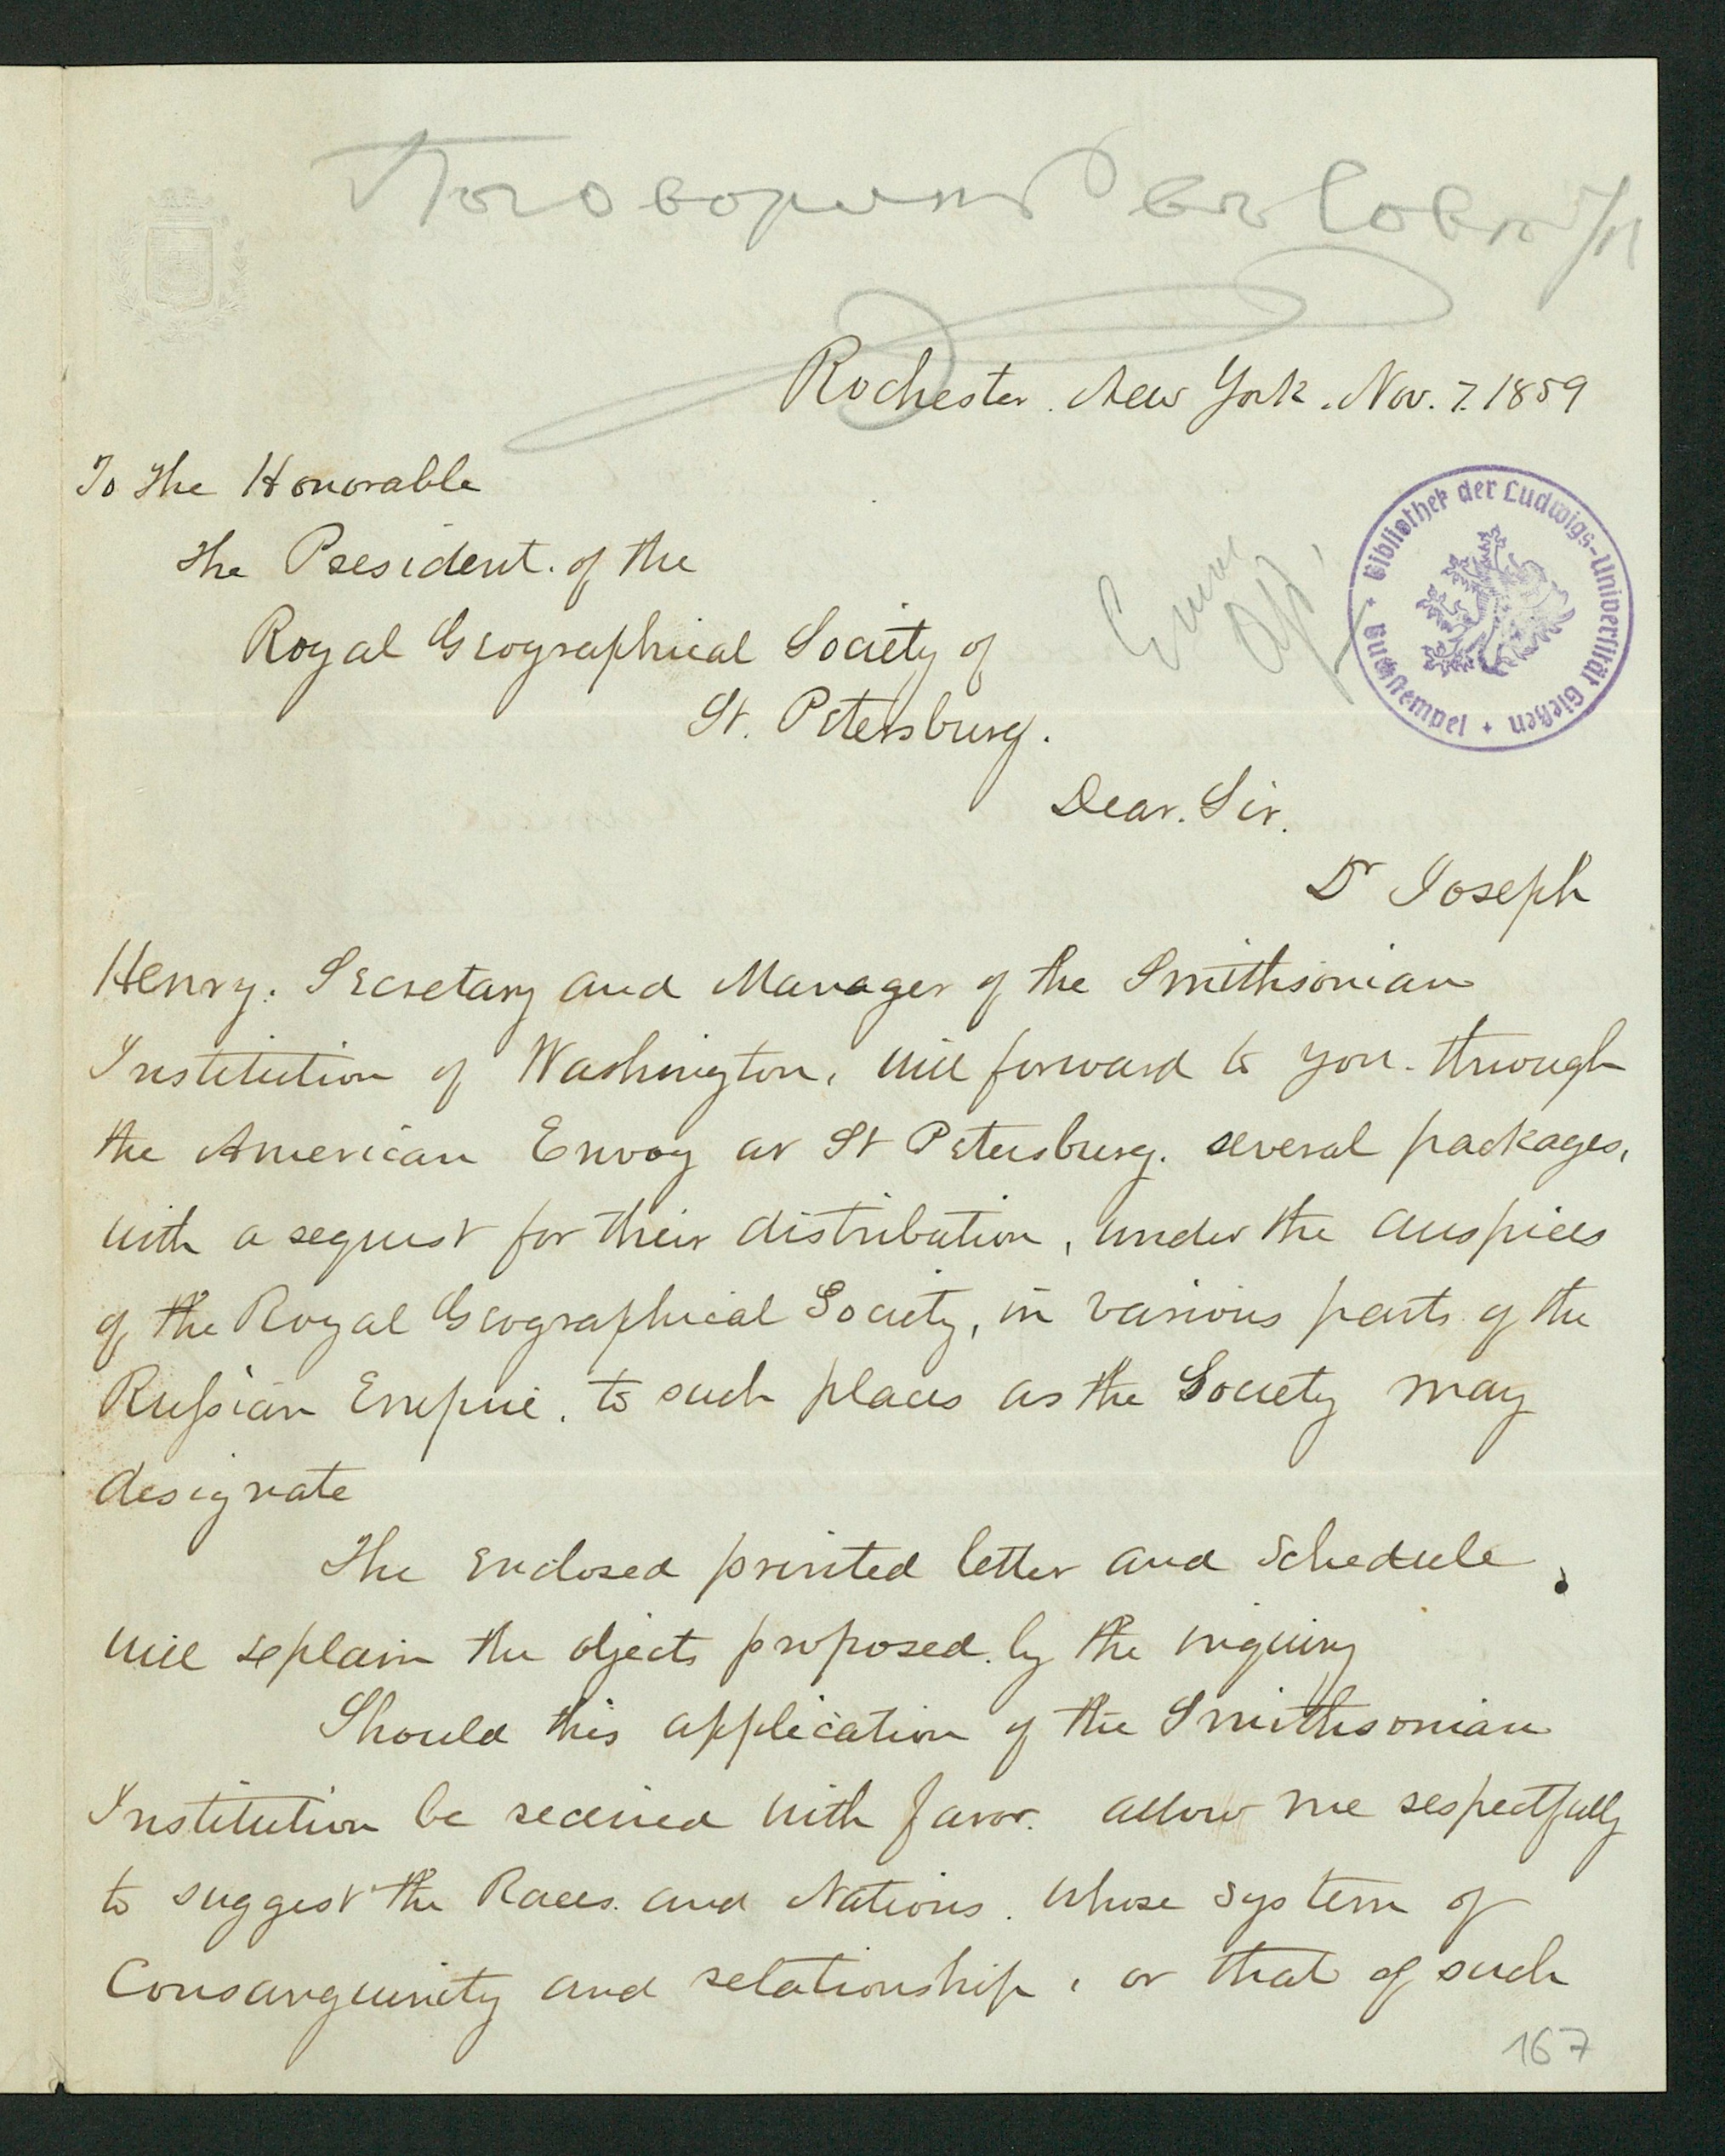 Поговорить въ Совѣтѣ
Rochester. New York. Nov. 7. 1859
To the Honorable
the President. of the
Royal Geographical Society of
St. Petersburg.
Bibliothek der Ludwigs-Universität Gießen + Buchstempel +
Dear. Sir.
Dr Joseph
Henry. Secretary and Manager of the Smithsonian
Institution of Washington, will forward to you. through
the American Envoy at St Petersburg. several packages,
with a request for their distribution, under the auspices
of the Royal Geographical Society, in various parts of the
Russian Empire. to such places as the Society may
designate
The enclosed printed letter and schedule,
will explain the objects proposed. by the inquiry
Should this application of the Smithsonian
Institution be received with favor. allow me respectfully
to suggest the Races. and Nations. whose system of
Consanguinity and relationship, or that of such
167